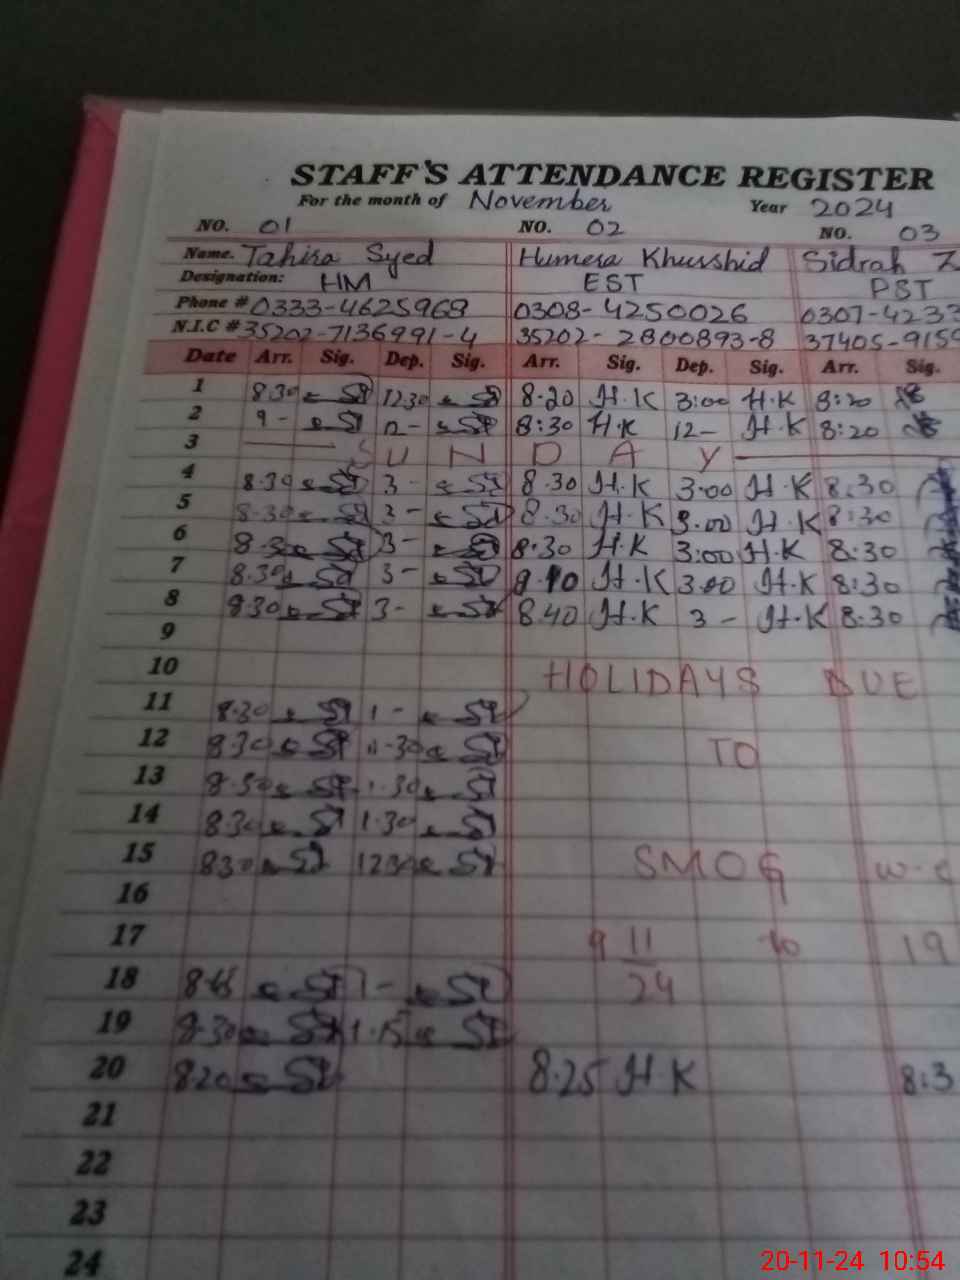 STAFF'S ATTENDANCE REGISTER
For the month of November Year 2024
NO. 01 NO. 02 NO. 03
Name. Tahira Syed Humera Khurshid Sidrah Z
Designation: HM EST PST
Phone # 0333-4625968 0308-4250026 0307-4233
N.I.C # 35202-7136991-4 35202-2800893-8 37405-9159
Date Arr. Sig. Dep. Sig. Arr. Sig. Dep. Sig. Arr. Sig.
1 8.30 1230 8.20 H.K 3:00 H.K 8:20
2 9- 12- 8:30 H.K 12- H.K 8:20
3 SUNDAY
4 8.30 3- 8.30 H.K 3.00 H.K 8:30
5 8.30 3- 8.30 H.K 3.00 H.K 8:30
6 8.30 3- 8.30 H.K 3:00 H.K 8:30
7 8.30 3- H.K 3.00 H.K 8:30
8 8.30 3- 8.40 H.K 3- H.K 8:30
9
10 HOLIDAYS DUE
11 8.30 1-
12 8.30 TO
13 8.30 1.30
14 8.30 1.30
15 830 SMOG
16
17 9 11 to 19
18 1- 24
19 8.30 1.15
20 8.20 8.25 H K 8:3
21
22
23
24
20-11-24 10:54